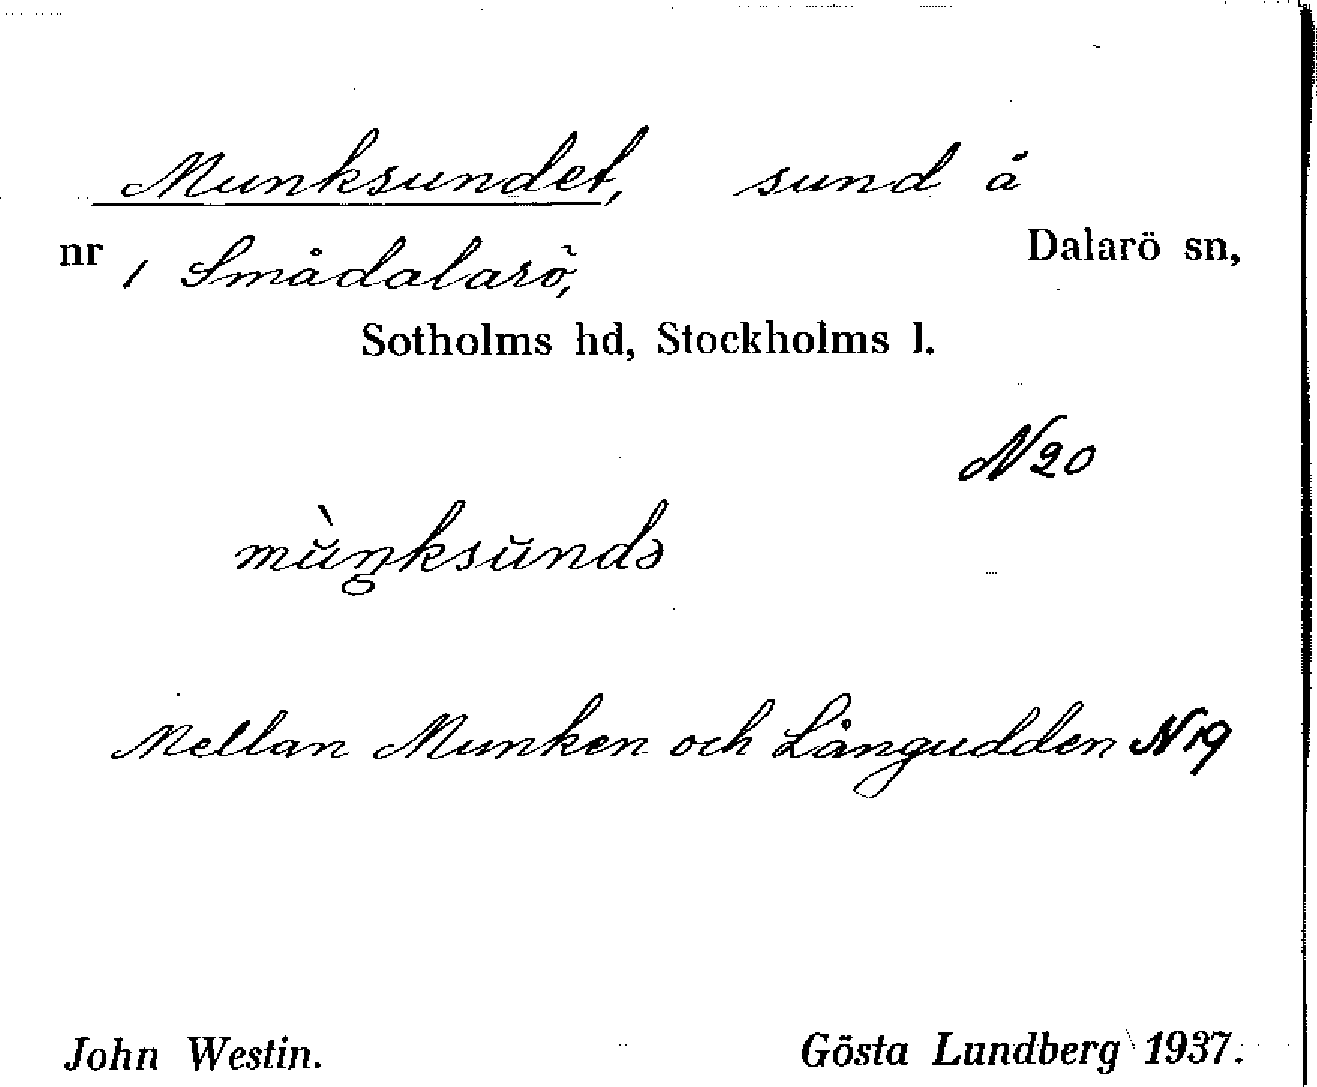 Munksundet, sund å
nr 1 Smådalarö, Dalarö sn,
Sotholms hd, Stockholms l.
N20
mùŋksŭndə
Mellan Munken och Långudden N19
John Westin. Gösta Lundberg 1937.